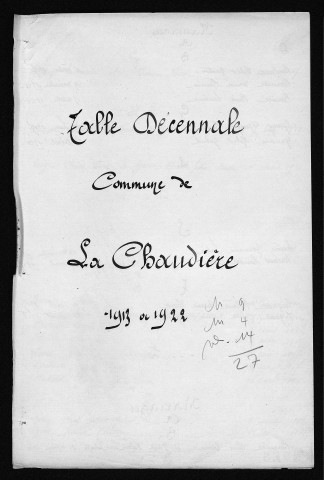 Table Décennale
Commune de
La Chaudière
1913 à 1922
N 9
M 4
D. 14
27